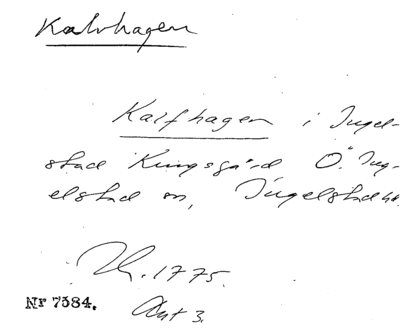 Kalvhagen
Kalfhagen i Ingel-
stad Kungsgård Ö. Ing-
elstad sn, Ingelstad hd.
1775.
Nr 7584. Akt 3.